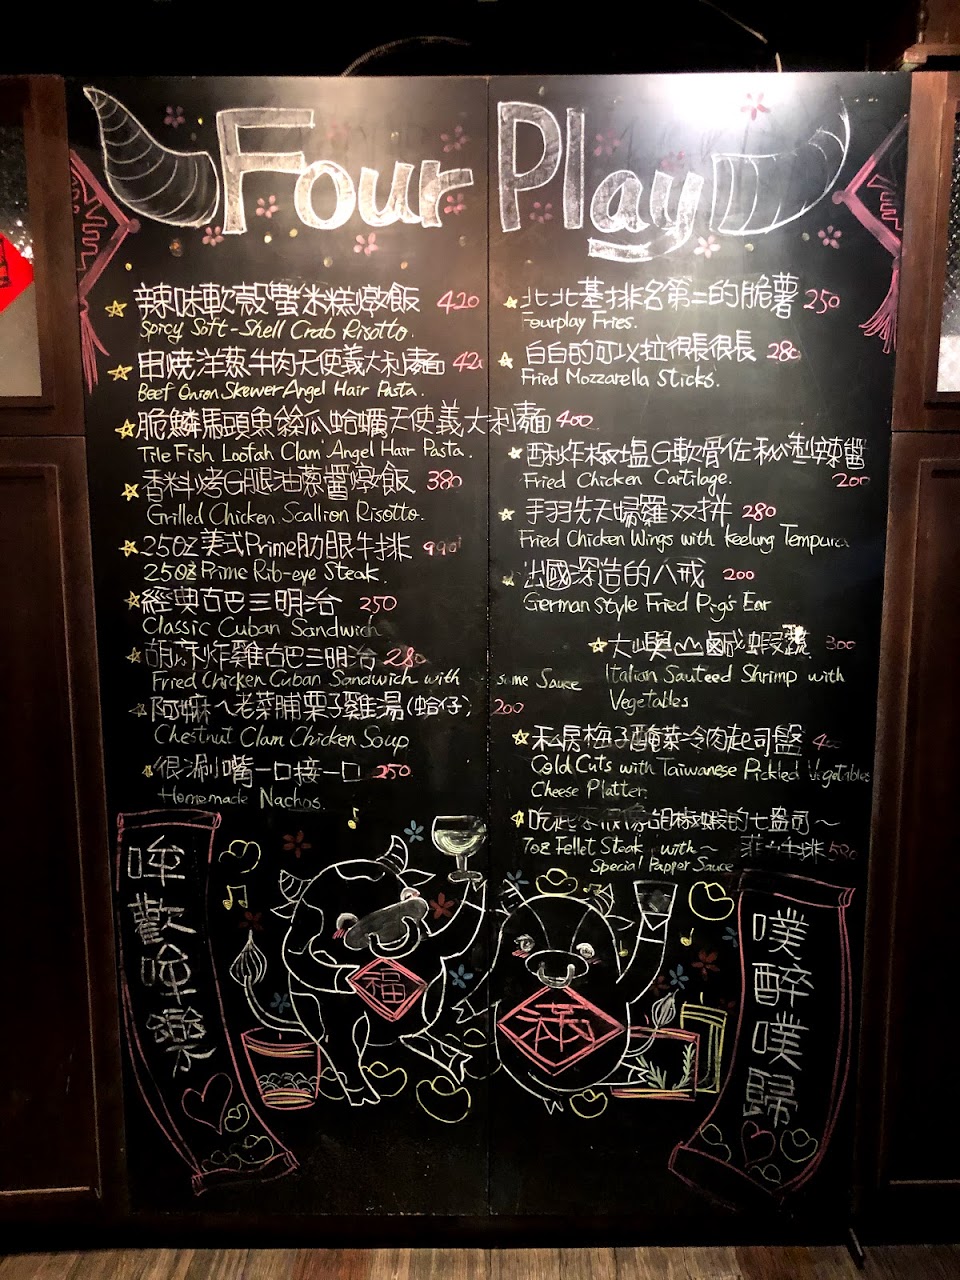 Four Play
辣味軟殼蟹米糕燉飯 420
Spicy Soft-Shell Crab Risotto.
串燒洋蔥牛肉天使義大利麵 420
Beef Onion Skewer Angel Hair Pasta.
脆鱗馬頭魚絲瓜蛤蠣天使義大利麵 400
Tile Fish Loofah Clam Angel Hair Pasta.
香料烤G腿油蔥醬燉飯 380
Grilled Chicken Scallion Risotto.
25OZ美式Prime肋眼牛排 990
25OZ Prime Rib-eye Steak.
經典古巴三明治 250
Classic Cuban Sandwich
胡麻炸雞古巴三明治 280
Fried Chicken Cuban Sandwich with same Sauce
阿嬤ㄟ老菜脯栗子雞湯(蛤仔) 200
Chestnut Clam Chicken Soup
很涮嘴一口接一口 250
Homemade Nachos.
北北基排名第二的脆薯 250
Fourplay Fries.
白白的可以拉很長很長 280
Fried Mozzarella Sticks.
酥炸椒塩G軟骨佐秘製辣醬
Fried Chicken Cartilage. 200
手羽先天婦羅双拼 280
Fried Chicken Wings with Keelung Tempura
出國深造的八戒 200
German Style Fried Pig's Ear
大嶼山鹹蝦 300
Italian Sauteed Shrimp with
Vegetables
私房梅子醃菜冷肉起司盤
Cold Cuts with Taiwanese Pickled Vegetables
Cheese Platter.
吃起來很像胡椒蝦的七盎司～
7oz Fellet Steak with～ 菲力牛排 580
Special Papper Sauce
哞歡哞樂
福
滿
噗醉噗歸